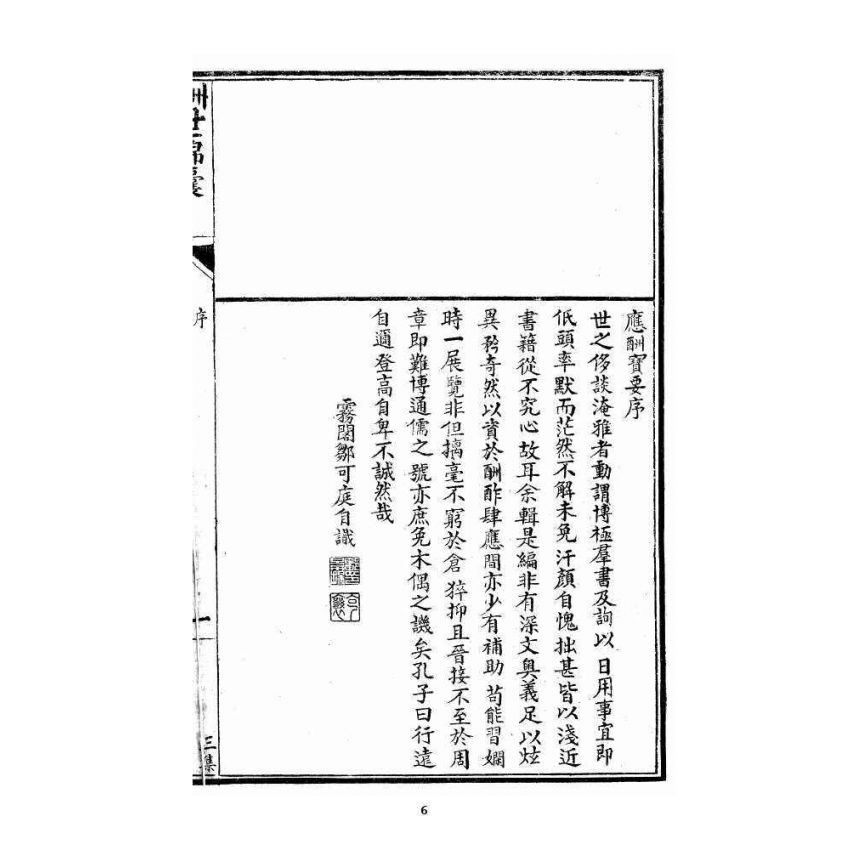 應酬寶要序
世之侈談淹雅者動謂博極羣書及詢以日用事宜即
低頭率默而茫然不解未免汗顏自愧拙甚皆以淺近
書籍從不究心故耳余輯是編非有深文奧義足以炫
異矜奇然以資於酬酢肆應間亦少有補助苟能習嫻
時一展覽非但摛毫不窮於倉猝抑且晉接不至於周
章即難博通儒之號亦庶免木偶之譏矣孔子曰行遠
自邇登高自卑不誠然哉
霧閣鄒可庭自識
酬世錦囊
序
一
三集
6